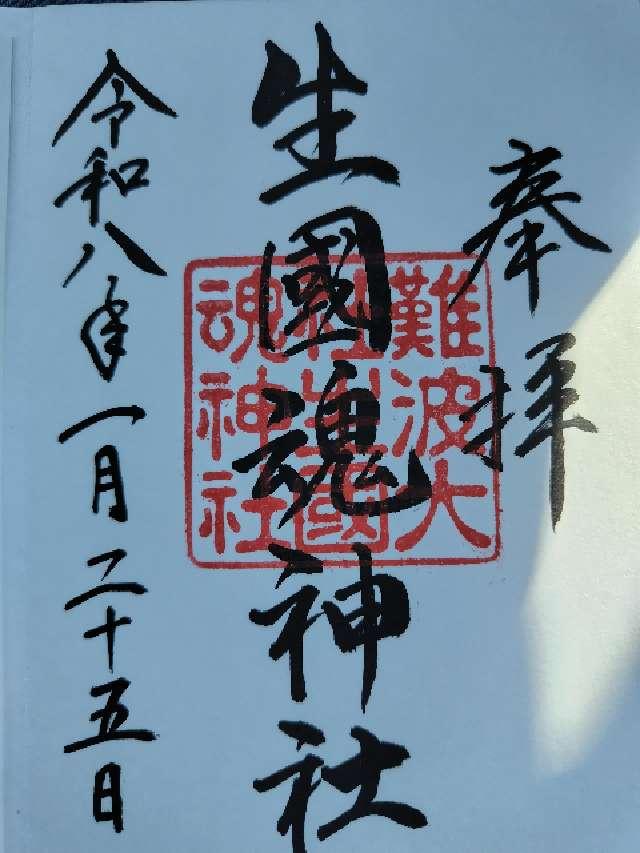 奉拝
生國魂神社
難波大
社生國
魂神社
令和八年一月二十五日